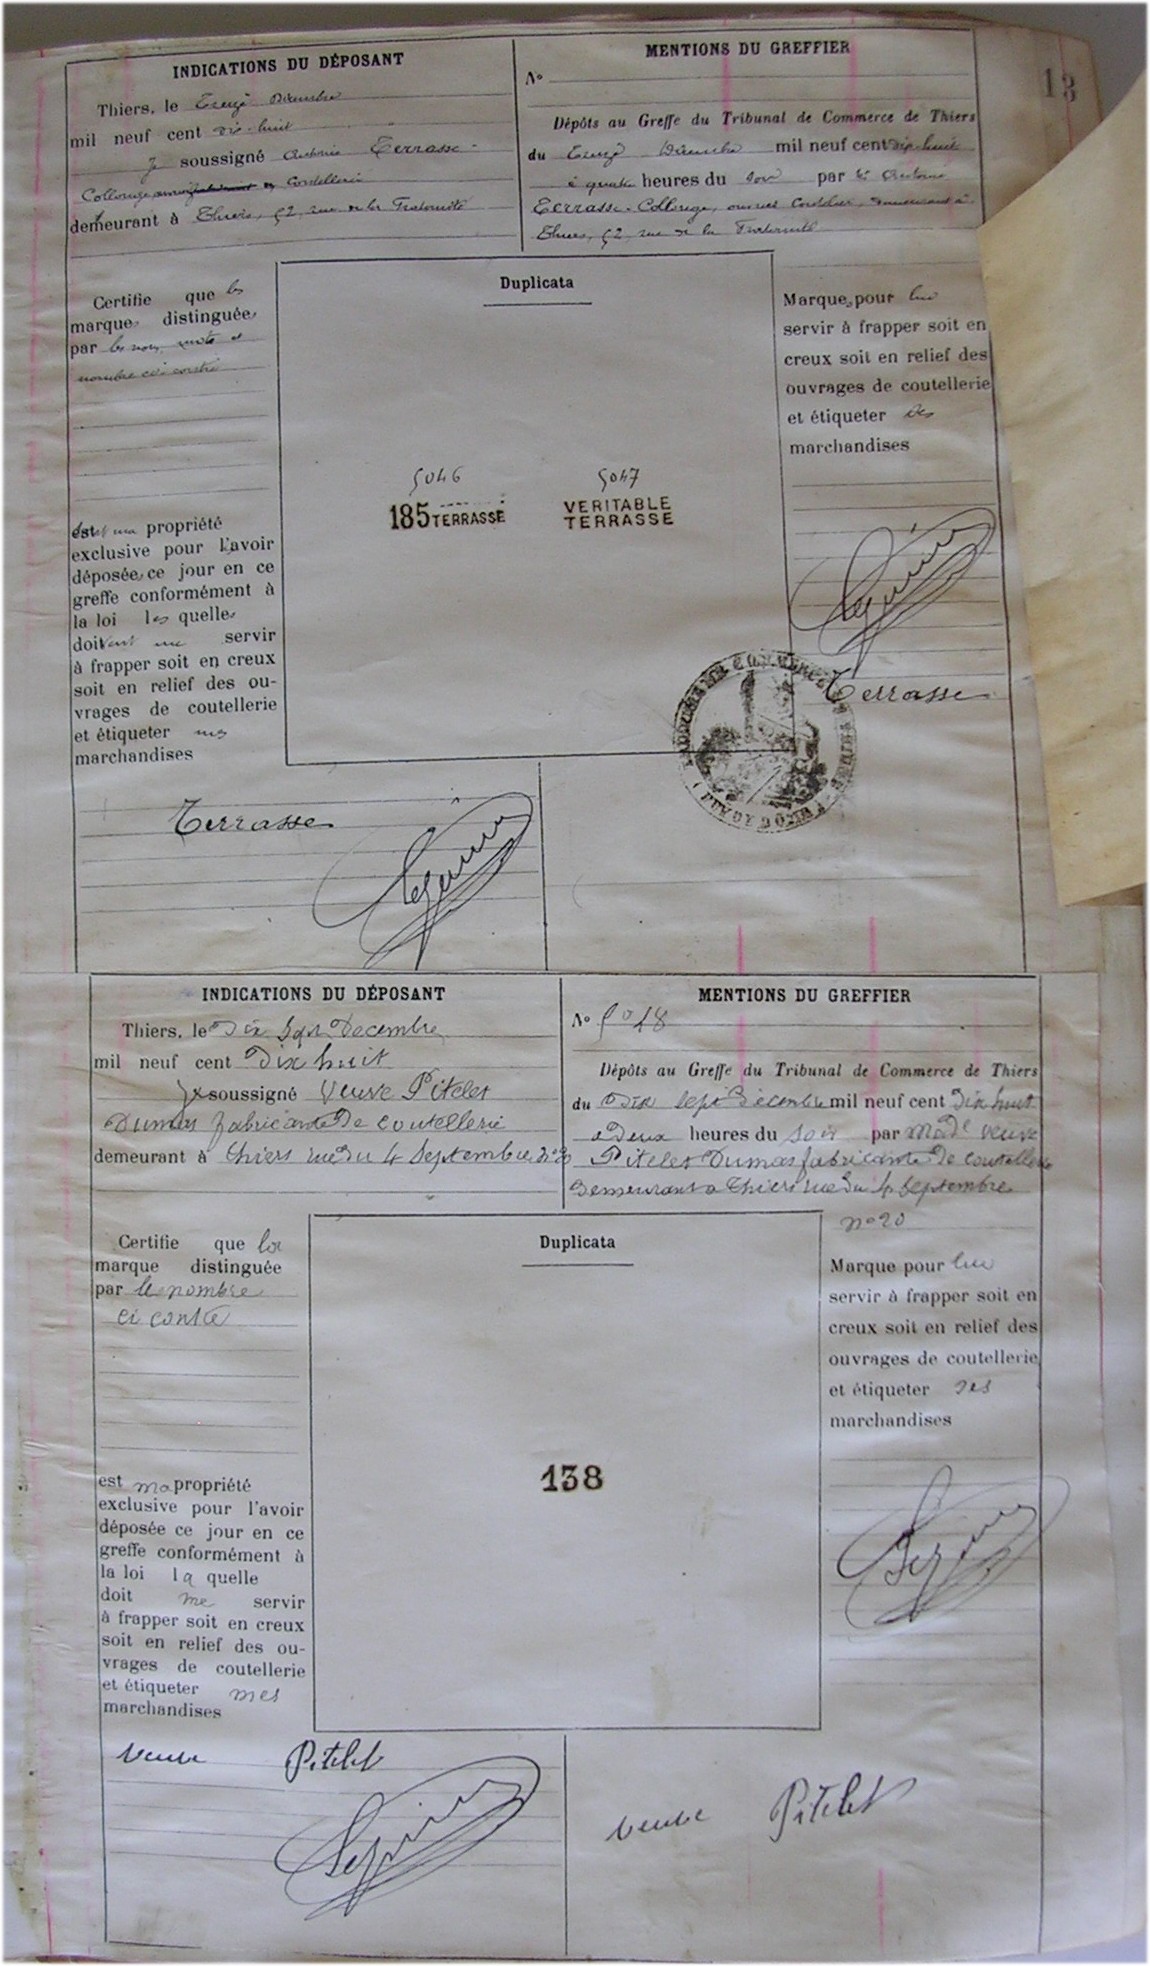 13
INDICATIONS DU DÉPOSANT
Thiers, le Treize Décembre
mil neuf cent dix-huit
Je soussigné Antoine Terrasse-
Collonge Cordelier
demeurant à Thiers, 52, rue de la Fraternité
MENTIONS DU GREFFIER
N°
Dépôts au Greffe du Tribunal de Commerce de Thiers
du Treize Décembre mil neuf cent dix-huit
à quatre heures du soir par Mr Antoine
Terrasse-Collonge, ouvrier Cordelier, demeurant à
Thiers, 52 rue de la Fraternité
Certifie que les
marques distinguées
par les noms, mots et
nombre ci-contre
est ma propriété
exclusive pour l'avoir
déposées ce jour en ce
greffe conformément à
la loi les quelles
doivent me servir
à frapper soit en creux
soit en relief des ou-
vrages de coutellerie
et étiqueter mes
marchandises
Duplicata
5046 5047
185 TERRASSE VERITABLE
TERRASSE
Marques pour lui
servir à frapper soit en
creux soit en relief des
ouvrages de coutellerie
et étiqueter ses
marchandises
Terrasse
COMMERCE
(PUY DE DÔME)
Terrasse
INDICATIONS DU DÉPOSANT
Thiers, le Dix Sept Decembre
mil neuf cent Dix huit
Je soussigné Veuve Pitelet
Dumas fabricante De coutellerie
demeurant à Thiers rue du 4 Septembre n° 20
MENTIONS DU GREFFIER
N° 5048
Dépôts au Greffe du Tribunal de Commerce de Thiers
du Dix Sept Décembre mil neuf cent Dix huit
à Deux heures du soir par Made veuve
Pitelet Dumas fabricante De coutellerie
Demeurant a Thiers rue du 4 Septembre
n° 20
Certifie que la
marque distinguée
par le nombre
ci contre
est ma propriété
exclusive pour l'avoir
déposée ce jour en ce
greffe conformément à
la loi la quelle
doit me servir
à frapper soit en creux
soit en relief des ou-
vrages de coutellerie
et étiqueter mes
marchandises
Duplicata
138
Marque pour lui
servir à frapper soit en
creux soit en relief des
ouvrages de coutellerie
et étiqueter ses
marchandises
Veuve Pitelet
veuve Pitelet